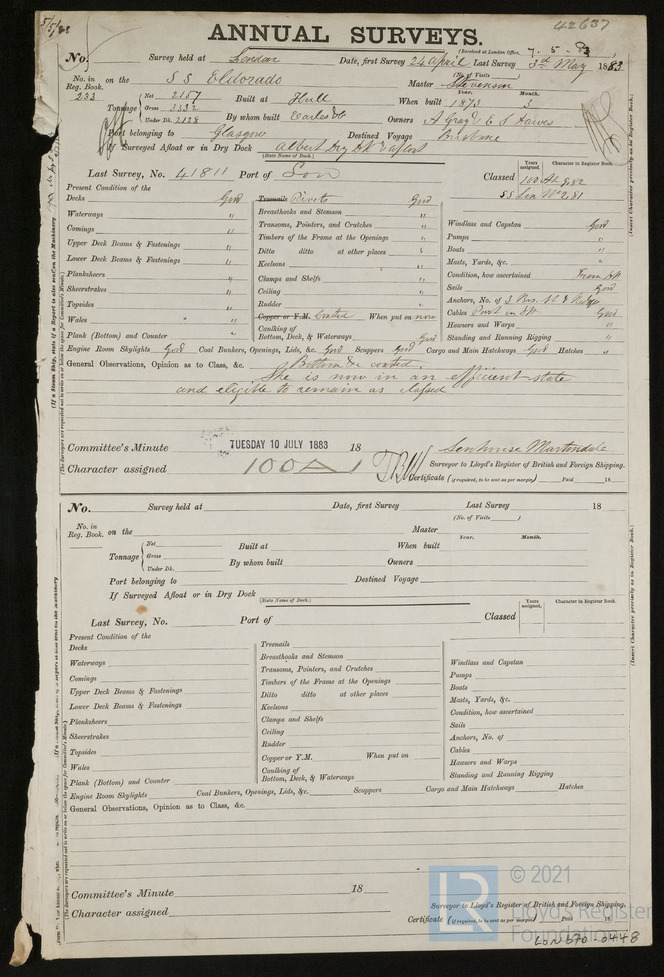 5/5/83
42637
ANNUAL SURVEYS.
(Received at London Office, 7. 5 - 83
No. Survey held at London Date, first Survey 24 April Last Survey 3rd May 1883
(No. of Visits )
No. in Reg. Book. 233 on the S S Eldorado Master Stevenson
Tonnage Net 2157 Built at Hull When built Year. 1873 Month. 3
Gross 3332
Under Dk. 2128 By whom built Earles Owners A Gray & E S Dawes
Port belonging to Glasgow Destined Voyage Brisbane
If Surveyed Afloat or in Dry Dock Albert Dry Dk
(State Name of Dock.)
Last Survey, No. 41811 Port of Lon Classed
Years assigned. Character in Register Book.
100 A1 9,82
SS Lon No 2,81
Present Condition of the
Decks Good
Waterways "
Comings "
Upper Deck Beams & Fastenings "
Lower Deck Beams & Fastenings "
Planksheers "
Sheerstrakes "
Topsides "
Wales "
Plank (Bottom) and Counter "
Treenails Rivets Good
Breasthooks and Stemson "
Transoms, Pointers, and Crutches "
Timbers of the Frame at the Openings "
Ditto ditto at other places "
Keelsons "
Clamps and Shelfs "
Ceiling "
Rudder "
Copper or Y.M. Coated When put on now
Caulking of Bottom, Deck, & Waterways Good
Windlass and Capstan Good
Pumps "
Boats "
Masts, Yards, &c. "
Condition, how ascertained From Dk
Sails Good
Anchors, No. of 3 Bow, St &
Cables Good
Hawsers and Warps "
Standing and Running Rigging "
Engine Room Skylights Good Coal Bunkers, Openings, Lids, &c. Good Scuppers Good Cargo and Main Hatchways Good Hatches "
General Observations, Opinion as to Class, &c. Bottom &c coated.
She is now in an efficient state
and eligible to remain as classed
Committee's Minute TUESDAY 10 JULY 1883 18
Senhouse Martindale
Character assigned 100A1
Surveyor to Lloyd's Register of British and Foreign Shipping.
Certificate (if required, to be sent as per margin) Paid 18
No. Survey held at Date, first Survey Last Survey 18
(No. of Visits )
No. in Reg. Book. on the Master
Tonnage Net Built at When built Year. Month.
Gross
Under Dk. By whom built Owners
Port belonging to Destined Voyage
If Surveyed Afloat or in Dry Dock
(State Name of Dock.)
Last Survey, No. Port of Classed
Years assigned. Character in Register Book.
Present Condition of the
Decks
Waterways
Comings
Upper Deck Beams & Fastenings
Lower Deck Beams & Fastenings
Planksheers
Sheerstrakes
Topsides
Wales
Plank (Bottom) and Counter
Treenails
Breasthooks and Stemson
Transoms, Pointers, and Crutches
Timbers of the Frame at the Openings
Ditto ditto at other places
Keelsons
Clamps and Shelfs
Ceiling
Rudder
Copper or Y.M. When put on
Caulking of Bottom, Deck, & Waterways
Windlass and Capstan
Pumps
Boats
Masts, Yards, &c.
Condition, how ascertained
Sails
Anchors, No. of
Cables
Hawsers and Warps
Standing and Running Rigging
Engine Room Skylights Coal Bunkers, Openings, Lids, &c. Scuppers Cargo and Main Hatchways Hatches
General Observations, Opinion as to Class, &c.
Committee's Minute 18
Character assigned
Surveyor to Lloyd's Register of British and Foreign Shipping.
Certificate (if required, to be sent as per margin) Paid 18
(Insert Character precisely as in Register Book.)
(Insert Character precisely as in Register Book.)
LR © 2021
Lloyd's Register
Foundation
LON670-0448